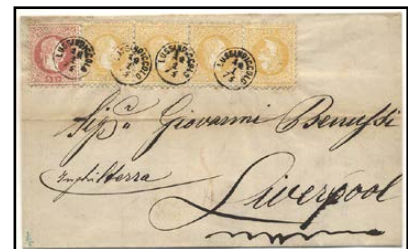 LUSSINPICCOLO
LUSSINPICCOLO
LUSSINPICCOLO
LUSSINPICCOLO
Sigr. Giovanni Benussi
Inghilterra
Liverpool